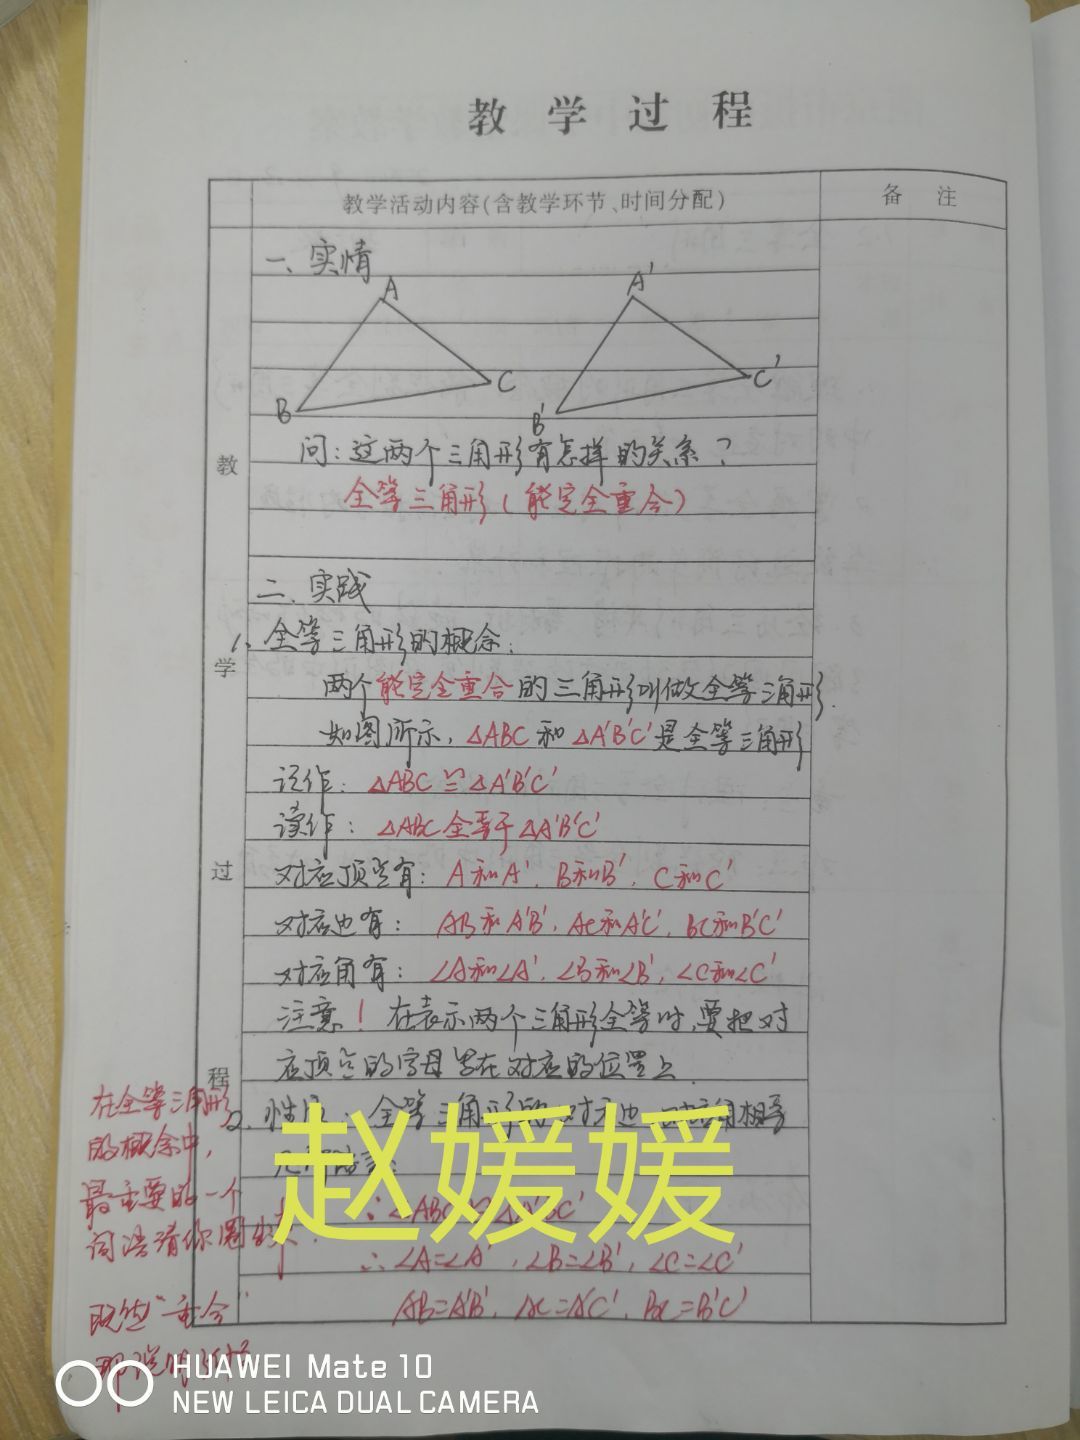 教学过程
教学活动内容(含教学环节、时间分配)
备注
教学过程
一、实情
A
B
C
A'
B'
C'
问:这两个三角形有怎样的关系?
全等三角形(能完全重合)
二、实践
1、全等三角形的概念:
两个能完全重合的三角形叫做全等三角形.
如图所示,△ABC和△A'B'C'是全等三角形
记作:△ABC≌△A'B'C'
读作:△ABC全等于△A'B'C'
对应顶点有:A和A',B和B',C和C'
对应边有:AB和A'B',AC和A'C',BC和B'C'
对应角有:∠A和∠A',∠B和∠B',∠C和∠C'
注意!在表示两个三角形全等时,要把对
应顶点的字母写在对应的位置上.
2、性质:全等三角形的对应边、对应角相等
∵△ABC≌△A'B'C'
∴∠A=∠A',∠B=∠B',∠C=∠C'
AB=A'B',AC=A'C',BC=B'C'
在全等三角形
的概念中,
最重要的一个
词语请你圈出来.
既然"重合"
那说明
赵媛媛
HUAWEI Mate 10
NEW LEICA DUAL CAMERA